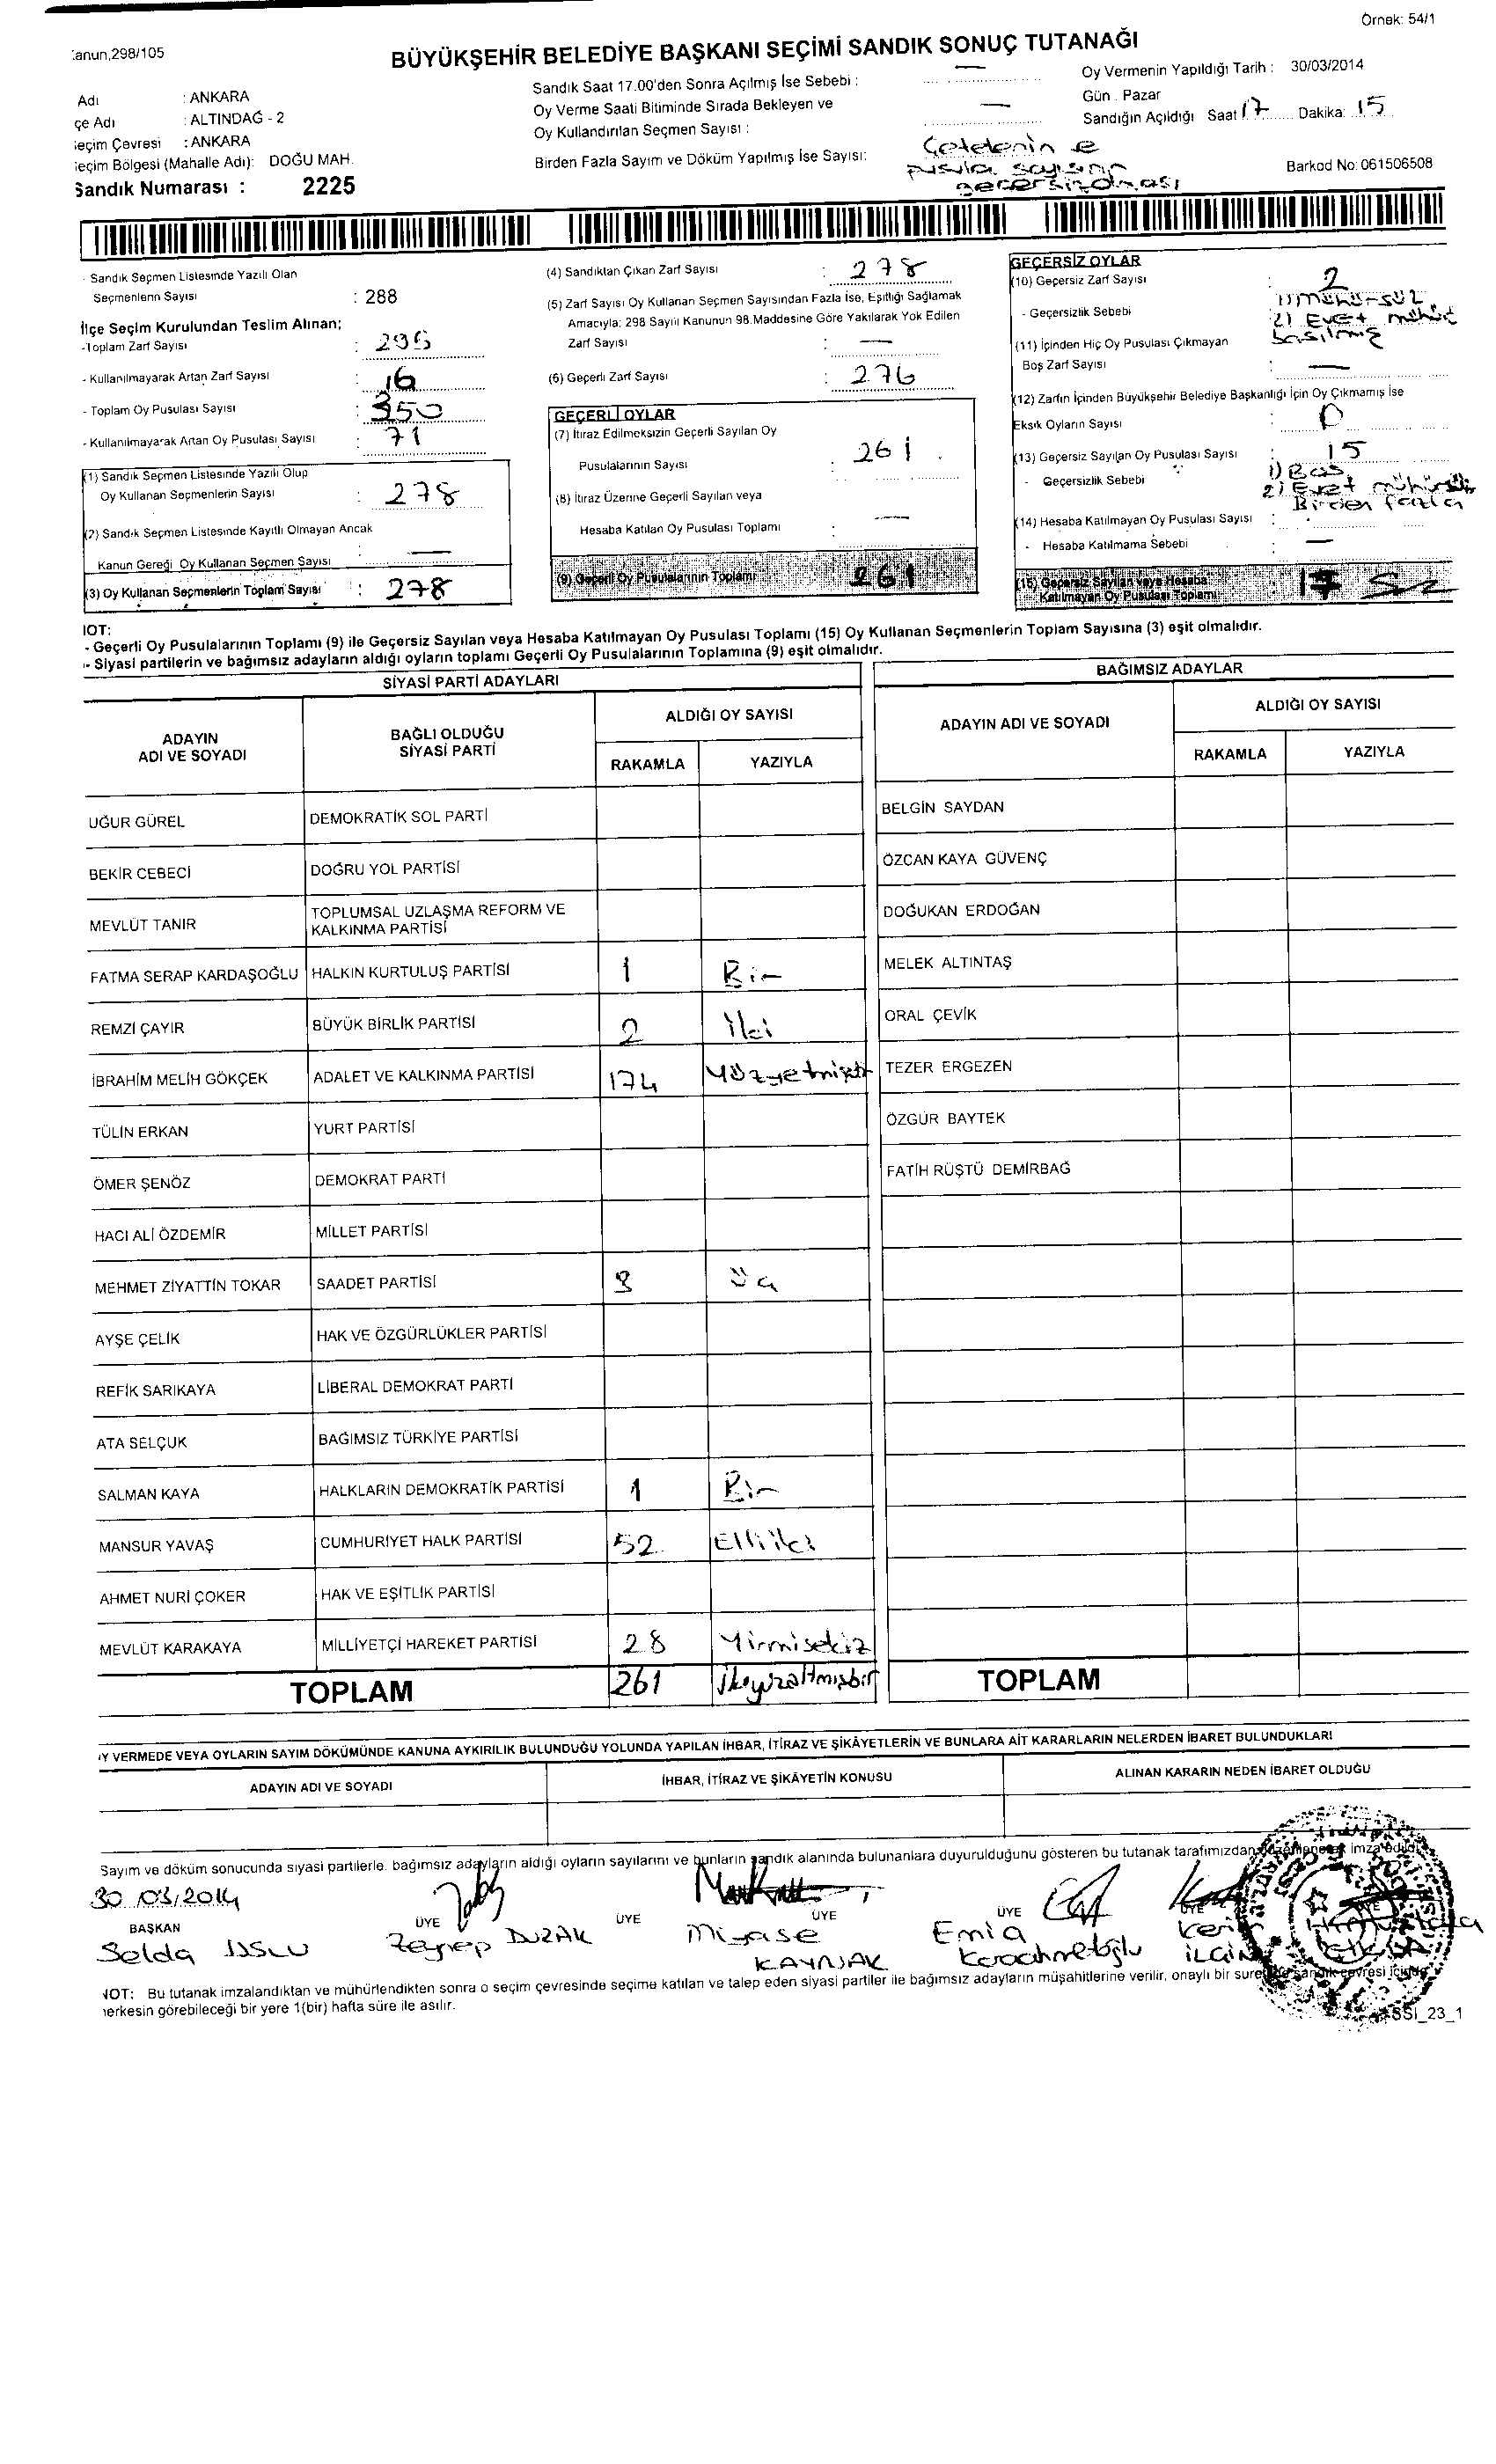 Örnek: 54/1
anun,298/105
BÜYÜKŞEHİR BELEDİYE BAŞKANI SEÇİMİ SANDIK SONUÇ TUTANAĞI
Adı : ANKARA
çe Adı : ALTINDAĞ - 2
eçim Çevresi : ANKARA
eçim Bölgesi (Mahalle Adı): DOĞU MAH.
Sandık Numarası : 2225
Sandık Saat 17.00'den Sonra Açılmış İse Sebebi : —
Oy Verme Saati Bitiminde Sırada Bekleyen ve
Oy Kullandırılan Seçmen Sayısı : —
Birden Fazla Sayım ve Döküm Yapılmış İse Sayısı: Çetelenin e
pusula sayısının
geçersiz olması
Oy Vermenin Yapıldığı Tarih : 30/03/2014
Gün : Pazar
Sandığın Açıldığı Saat 17 Dakika: 15
Barkod No: 061506508
- Sandık Seçmen Listesinde Yazılı Olan
Seçmenlerin Sayısı : 288
İlçe Seçim Kurulundan Teslim Alınan;
-Toplam Zarf Sayısı : 295
- Kullanılmayarak Artan Zarf Sayısı : 16
- Toplam Oy Pusulası Sayısı : 350
- Kullanılmayarak Artan Oy Pusulası Sayısı : 71
(1) Sandık Seçmen Listesinde Yazılı Olup
Oy Kullanan Seçmenlerin Sayısı : 278
(2) Sandık Seçmen Listesinde Kayıtlı Olmayan Ancak
Kanun Gereği Oy Kullanan Seçmen Sayısı : —
(3) Oy Kullanan Seçmenlerin Toplam Sayısı : 278
(4) Sandıktan Çıkan Zarf Sayısı : 278
(5) Zarf Sayısı Oy Kullanan Seçmen Sayısından Fazla İse, Eşitliği Sağlamak
Amacıyla; 298 Sayılı Kanunun 98.Maddesine Göre Yakılarak Yok Edilen
Zarf Sayısı : —
(6) Geçerli Zarf Sayısı : 276
GEÇERLİ OYLAR
(7) İtiraz Edilmeksizin Geçerli Sayılan Oy
Pusulalarının Sayısı : 261
(8) İtiraz Üzerine Geçerli Sayılan veya
Hesaba Katılan Oy Pusulası Toplamı : —
(9) Geçerli Oy Pusulalarının Toplamı 261
GEÇERSİZ OYLAR
(10) Geçersiz Zarf Sayısı : 2
- Geçersizlik Sebebi 1) mühürsüz
2) Evet mühür
basılmış
(11) İçinden Hiç Oy Pusulası Çıkmayan
Boş Zarf Sayısı : —
(12) Zarfın İçinden Büyükşehir Belediye Başkanlığı İçin Oy Çıkmamış İse
Eksik Oyların Sayısı : 0
(13) Geçersiz Sayılan Oy Pusulası Sayısı : 15
- Geçersizlik Sebebi : 1) Boş
2) Evet mühürü
Birden fazla
(14) Hesaba Katılmayan Oy Pusulası Sayısı :
- Hesaba Katılmama Sebebi : —
(15) Geçersiz Sayılan veya Hesaba
Katılmayan Oy Pusulası Toplamı 17
NOT:
- Geçerli Oy Pusulalarının Toplamı (9) ile Geçersiz Sayılan veya Hesaba Katılmayan Oy Pusulası Toplamı (15) Oy Kullanan Seçmenlerin Toplam Sayısına (3) eşit olmalıdır.
- Siyasi partilerin ve bağımsız adayların aldığı oyların toplamı Geçerli Oy Pusulalarının Toplamına (9) eşit olmalıdır.
SİYASİ PARTİ ADAYLARI
BAĞIMSIZ ADAYLAR
ADAYIN ADI VE SOYADI
BAĞLI OLDUĞU SİYASİ PARTİ
ALDIĞI OY SAYISI
RAKAMLA YAZIYLA
ADAYIN ADI VE SOYADI
ALDIĞI OY SAYISI
RAKAMLA YAZIYLA
UĞUR GÜREL DEMOKRATİK SOL PARTİ BELGİN SAYDAN
BEKİR CEBECİ DOĞRU YOL PARTİSİ ÖZCAN KAYA GÜVENÇ
MEVLÜT TANIR TOPLUMSAL UZLAŞMA REFORM VE KALKINMA PARTİSİ DOĞUKAN ERDOĞAN
FATMA SERAP KARDAŞOĞLU HALKIN KURTULUŞ PARTİSİ 1 Bir MELEK ALTINTAŞ
REMZİ ÇAYIR BÜYÜK BİRLİK PARTİSİ 2 İki ORAL ÇEVİK
İBRAHİM MELİH GÖKÇEK ADALET VE KALKINMA PARTİSİ 174 TEZER ERGEZEN
TÜLİN ERKAN YURT PARTİSİ ÖZGÜR BAYTEK
ÖMER ŞENÖZ DEMOKRAT PARTİ FATİH RÜŞTÜ DEMİRBAĞ
HACI ALİ ÖZDEMİR MİLLET PARTİSİ
MEHMET ZİYATTİN TOKAR SAADET PARTİSİ 3 Üç
AYŞE ÇELİK HAK VE ÖZGÜRLÜKLER PARTİSİ
REFİK SARIKAYA LİBERAL DEMOKRAT PARTİ
ATA SELÇUK BAĞIMSIZ TÜRKİYE PARTİSİ
SALMAN KAYA HALKLARIN DEMOKRATİK PARTİSİ 1 Bir
MANSUR YAVAŞ CUMHURİYET HALK PARTİSİ 52 Elliiki
AHMET NURİ ÇOKER HAK VE EŞİTLİK PARTİSİ
MEVLÜT KARAKAYA MİLLİYETÇİ HAREKET PARTİSİ 28 Yirmisekiz
TOPLAM 261 İkiyüzaltmışbir TOPLAM
Y VERMEDE VEYA OYLARIN SAYIM DÖKÜMÜNDE KANUNA AYKIRILIK BULUNDUĞU YOLUNDA YAPILAN İHBAR, İTİRAZ VE ŞİKÂYETLERİN VE BUNLARA AİT KARARLARIN NELERDEN İBARET BULUNDUKLARI
ADAYIN ADI VE SOYADI İHBAR, İTİRAZ VE ŞİKÂYETİN KONUSU ALINAN KARARIN NEDEN İBARET OLDUĞU
Sayım ve döküm sonucunda siyasi partilerle, bağımsız adayların aldığı oyların sayılarını ve bunların sandık alanında bulunanlara duyurulduğunu gösteren bu tutanak tarafımızdan düzenlenerek imza edildi.
30.03.2014
BAŞKAN ÜYE ÜYE ÜYE ÜYE ÜYE
Selda USLU Zeynep DUZAK Miyase KAYNAK Emia Karaahmetoğlu Kerim İLGİN
NOT: Bu tutanak imzalandıktan ve mühürlendikten sonra o seçim çevresinde seçime katılan ve talep eden siyasi partiler ile bağımsız adayların müşahitlerine verilir, onaylı bir sureti de sandık çevresi içinde
herkesin görebileceği bir yere 1(bir) hafta süre ile asılır.
SSI_23_1